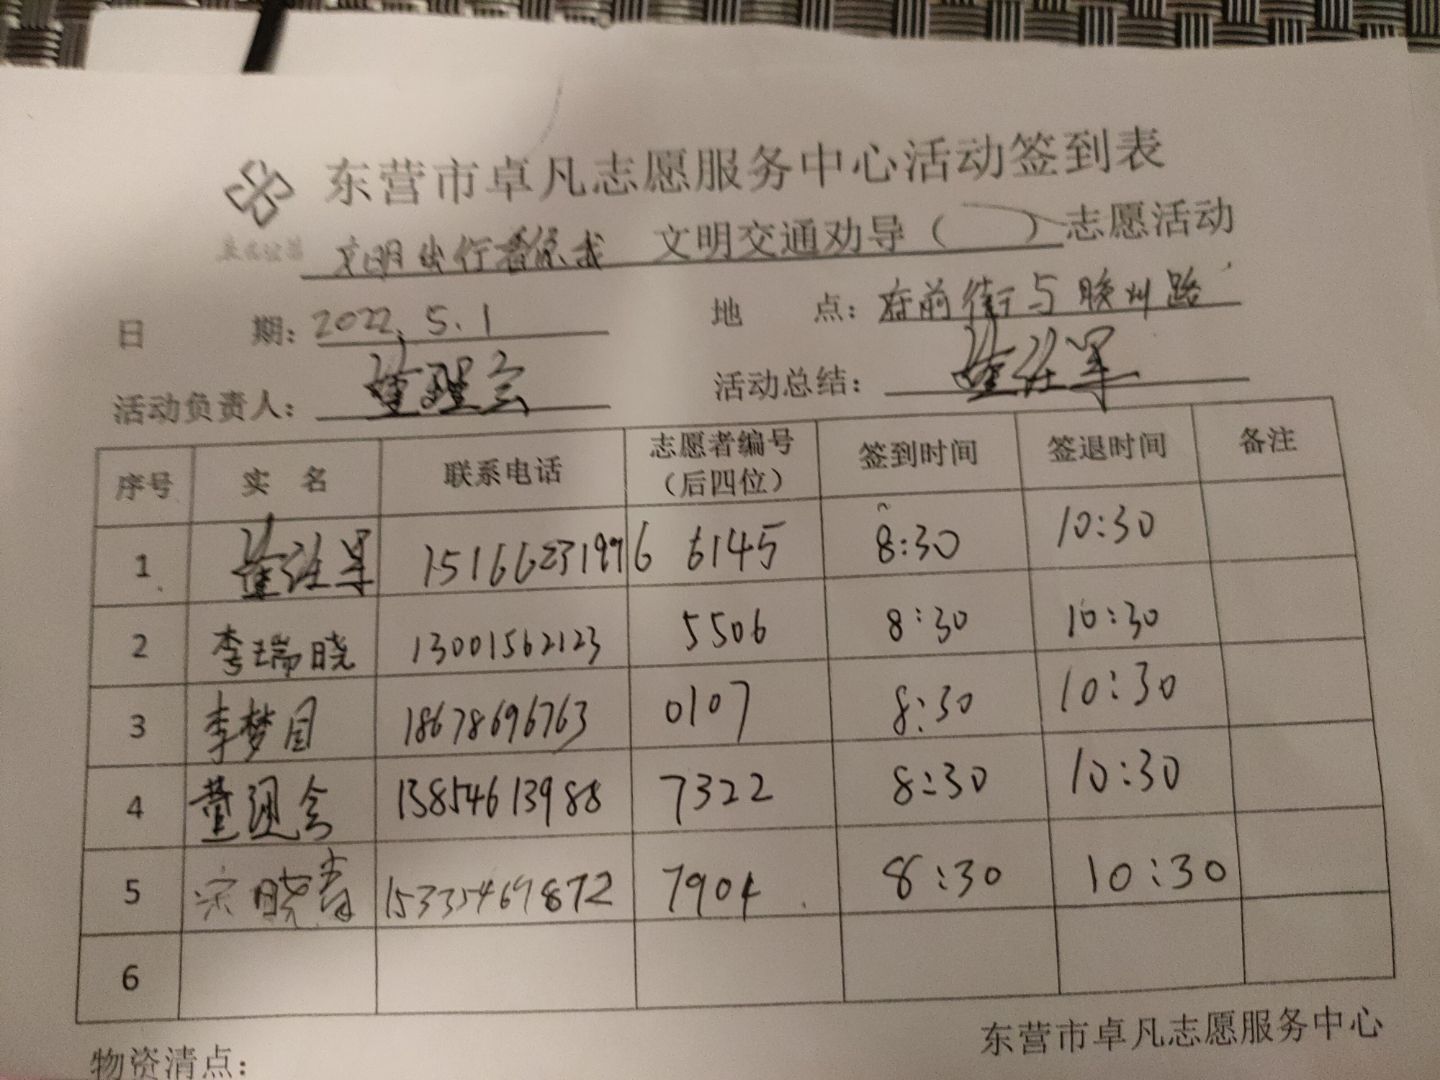 东营市卓凡志愿服务中心活动签到表
文明出行看你我 文明交通劝导（ ）志愿活动
日 期：2022.5.1 地 点：府前街与胶州路
活动负责人： 活动总结：
序号 实 名 联系电话 志愿者编号（后四位） 签到时间 签退时间 备注
1 6145 8:30 10:30
2 李瑞晓 13001562123 5506 8:30 10:30
3 李梦目 18678696763 0107 8:30 10:30
4 董现会 13854613988 7322 8:30 10:30
5 宋晓春 15335467872 7904 8:30 10:30
6
东营市卓凡志愿服务中心
物资清点：